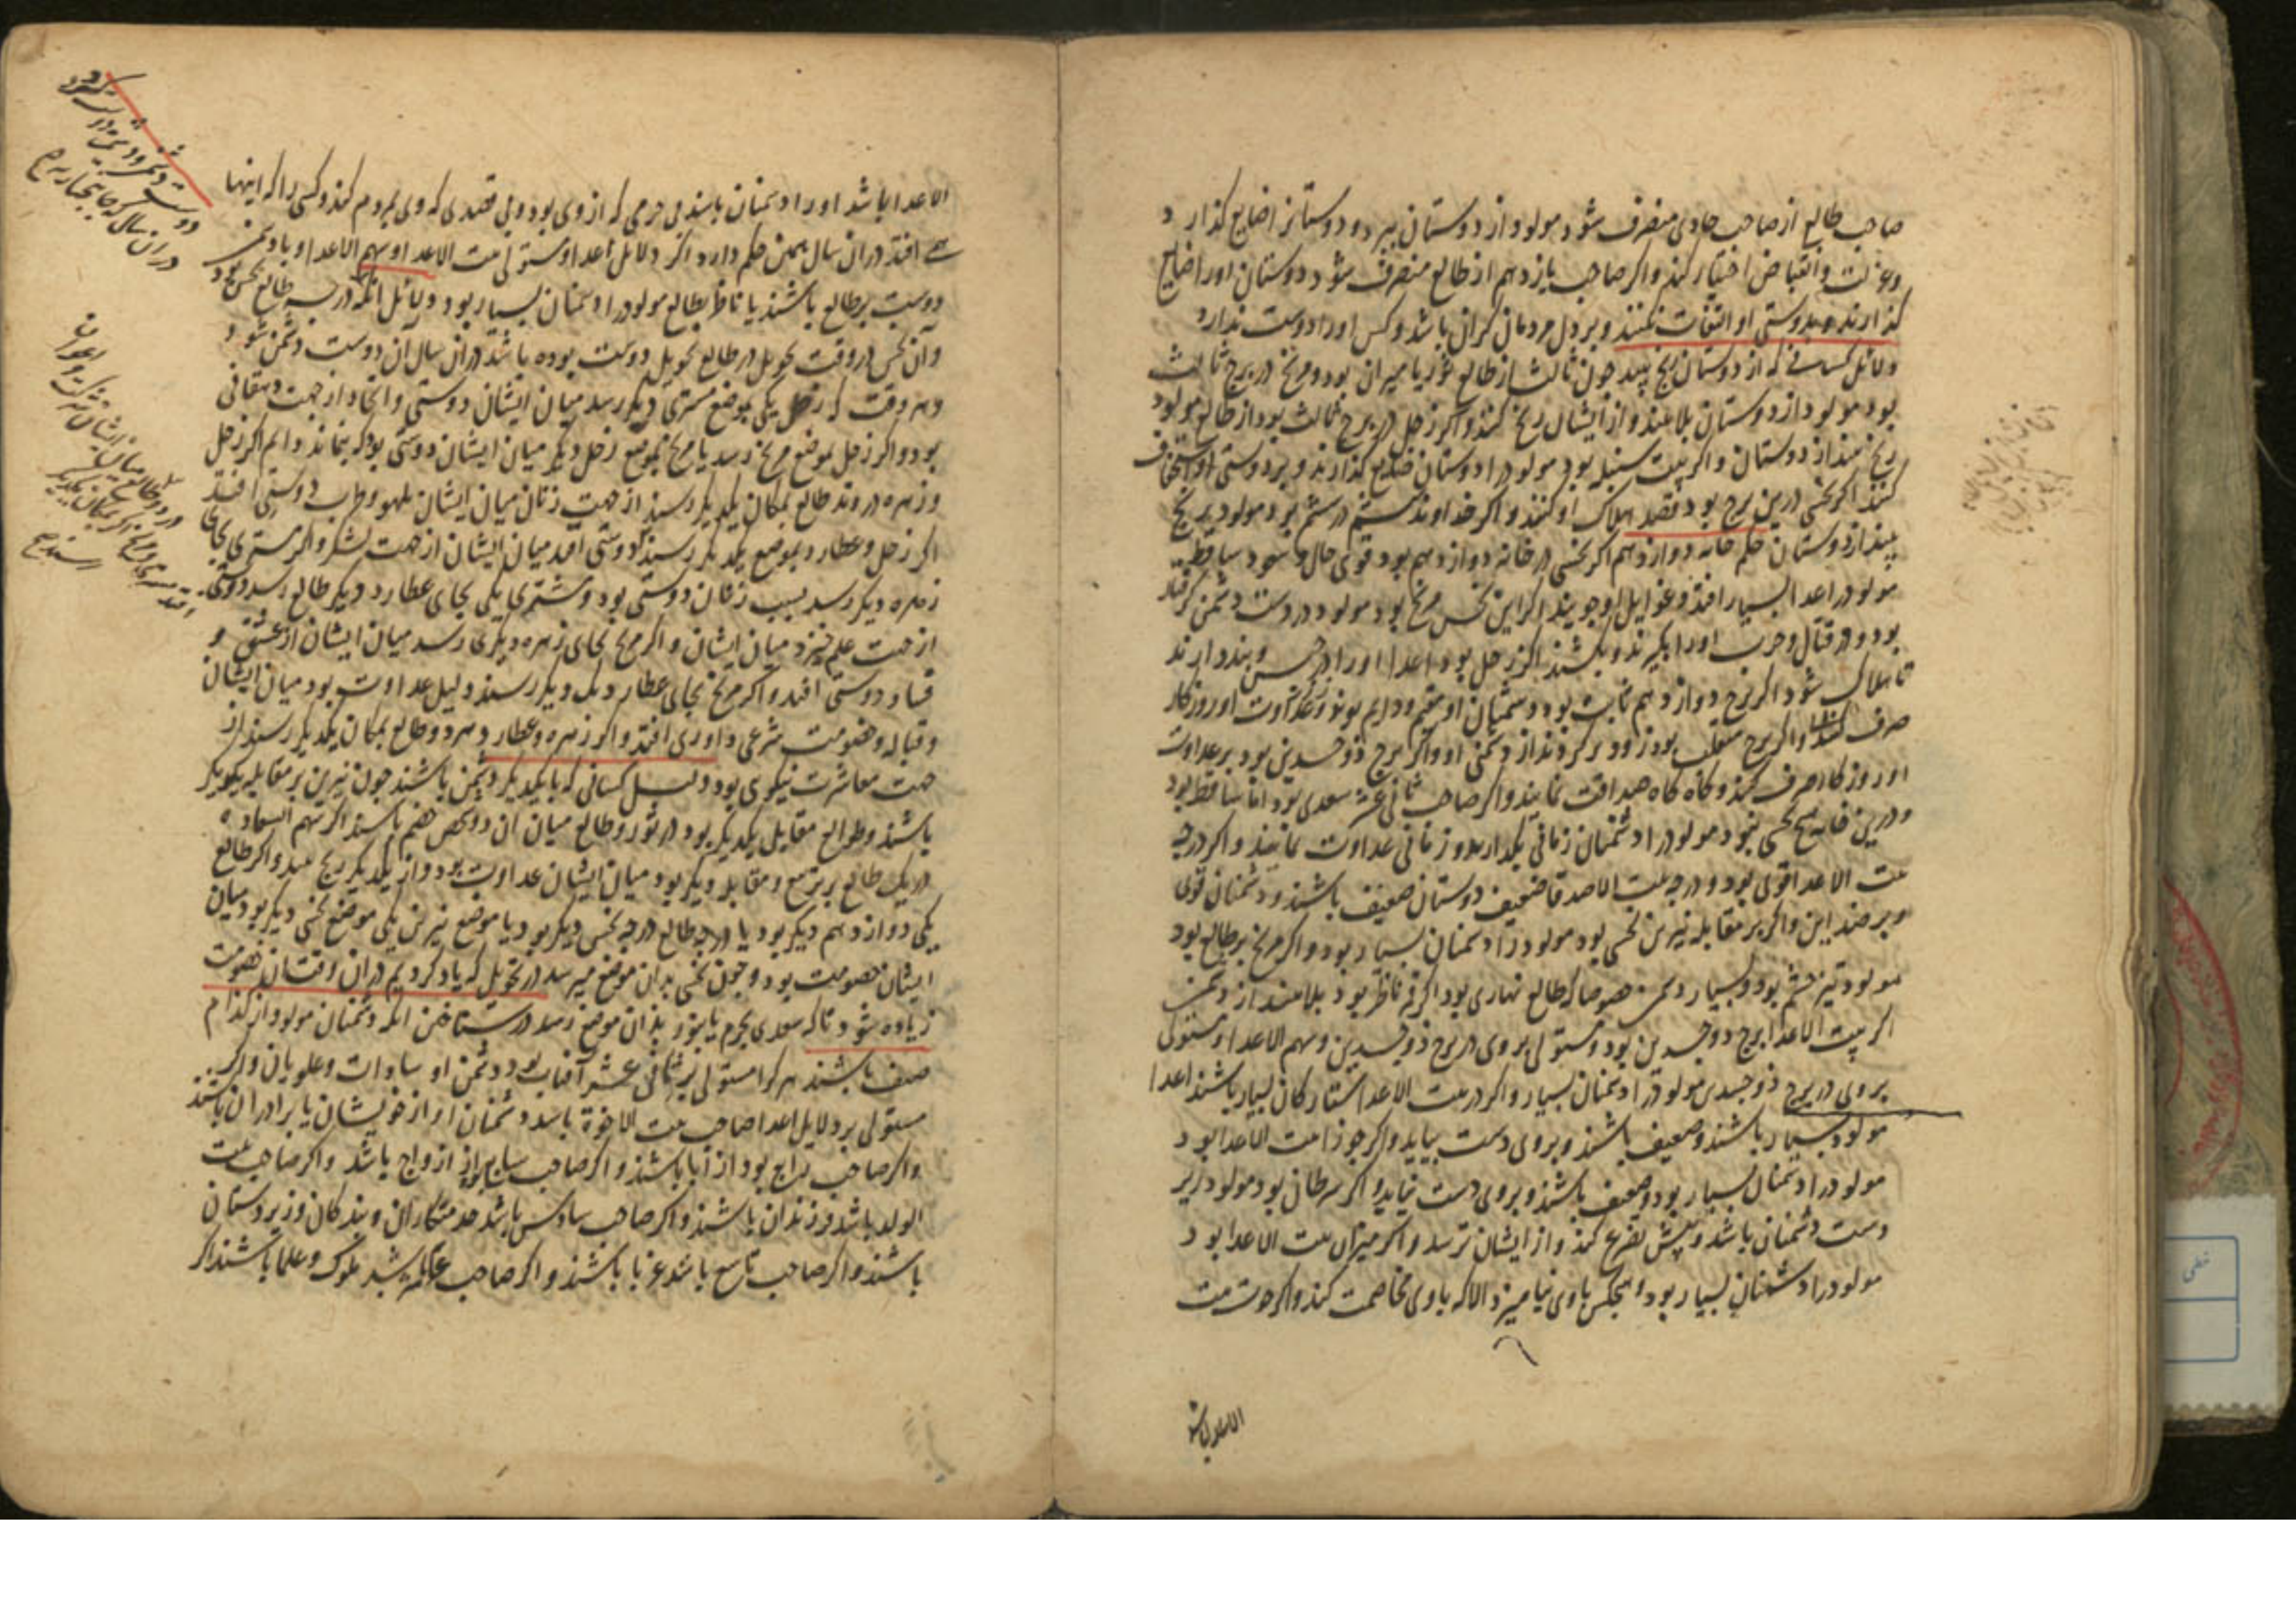 صاحب طالع از صاحب حادی منصرف شود مولود از دوستان ببرد و دوستانرا ضایع کذارد
و عزلت و انقباض اختیار کند و اکر صاحب یازدهم از طالع منصرف شود دوستان اورا ضایع
کذارند و بدوستی او التفات نکنند و بر دل مردمان کران باشد و کس اورا دوست ندارد
دلائل کسانی که از دوستان رنج بیند چون ثالث از طالع ثور یا میزان بود و مریخ در برج ثالث
بود مولود از دوستان بلا بیند و از ایشان رنج کشد و اکر زحل در برج ثالث بود از طالع مولود
رنج بیند از دوستان و اکر بیت سنبله بود مولود را دوستان ضایع کذارند و بر دوستی او استخفاف
کنند اکر نحسی درین برج بود قصد هلاک او کنند و اکر خداوند ششم در ششم بود مولود رنج
بیند از دوستان حکم خانه دوازدهم اکر نحسی در خانه دوازدهم بود قوی حال و سعود ساقط
مولود را اعدا بسیار افتد و غوایل او جویند اکر این نحس مریخ بود مولود در دست دشمن کرفتار
بود و در قتال و حرب اورا بکیرند و بکشند اکر زحل بود اعدا اورا در حبس و بند دارند
تا هلاک شود اکر برج دوازدهم ثابت بود دشمنان او مقیم و دایم بوند و در عداوت او روزکار
صرف کنند و اکر برج منقلب بود زود برکردند از دشمنی او و اکر برج ذوجسدین بود بر عداوت
او روزکار صرف کنند و کاه کاه صداقت نمایند و اکر صاحب ثانی عشر سعدی بود اما ساقط بود
و درین خانه هیچ نحسی نبود مولود را دشمنان زمانی بکذارند و زمانی عداوت نمایند و اکر درجه
بیت الاعدا قوی بود و درجه بیت الاصدقا ضعیف دوستان ضعیف باشند و دشمنان قوی
و بر ضد این و اکر بر مقابله نیرین نحسی بود مولود را دشمنان بسیار بود و اکر مریخ بر طالع بود
مولود تیز خشم بود و بسیار دشمن خصوصا که طالع نهاری بود اکر قمر ناظر بود بلا بیند از دشمن
اکر بیت الاعدا برج ذوجسدین بود و مستولی بر وی در برج ذوجسدین و سهم الاعدا و مستولی
بر وی در برج ذوجسدی مولود را دشمنان بسیار و اکر در بیت الاعدا ستارکان بسیار باشند اعدا
مولود بسیار باشند و ضعیف باشند و بر وی دست نیابند و اکر جوزا بیت الاعدا بود
مولود را دشمنان بسیار بود و ضعیف باشند و بر وی دست نیابند و اکر سرطان بود مولود زیر
دست دشمنان باشد و پیش تضرع کند و از ایشان ترسد و اکر میزان بیت الاعدا بود
مولود را دشمنان بسیار بود و هیچکس با وی نیامیزد الا که با وی مخاصمت کند و اکر حوت بیت
الاعدا باشد
الاعدا باشد اورا دشمنان باشند بی جرمی که از وی بود و بی قصدی که وی بمردم کند و کسی را که اینها
افتد در ان سال همین حکم دارد اکر دلائل اعدا و مستولی بیت الاعدا و سهم الاعدا و یا دشمن
دوست بر طالع باشند یا ناظر بطالع مولود را دشمنان بسیار بود دلائل آنکه درجه طالع نحس بود
و آن نحس در وقت تحویل در طالع تحویل دوست بوده باشد در ان سال آن دوست دشمن شود
و هر وقت که زحل یکی بموضع مشتری دیکر رسد میان ایشان دوستی و اتحاد از جهت دهقانی
بود و اکر زحل بموضع مریخ رسد یا مریخ بموضع زحل دیکر میان ایشان دوستی بود که نماند دایم اکر زحل
و زهره در وتد طالع بمکان یکدیکر رسند از جهت زنان میان ایشان بلهو و طرب دوستی افتد
اکر زحل و عطارد بموضع یکدیکر رسند دوستی افتد میان ایشان از جهت لشکر و اکر مشتری بجای
زهره دیکر رسد بسبب زنان دوستی بود و مشتری یکی بجای عطارد دیکر طالع رسد دوستی
از جهت علم خیزد میان ایشان و اکر مریخ بجای زهره دیکری رسد میان ایشان از عشق و
فساد دوستی افتد و اکر مریخ بجای عطارد یک دیکر رسند دلیل عداوت بود میان ایشان
و قباله و خصومت شرعی و داوری افتد و اکر زهره و عطارد و هر دو طالع بمکان یکدیکر رسند از
جهت معاشرت نیکوی بود دلیل کسانی که با یکدیکر دشمن باشند چون نیرین بر مقابله یکدیکر
باشند و طوالع مقابل یکدیکر بود در ثور و طالع میان آن دو شخص خصم باشند اکر سهم السعاده
در یک طالع بر تربیع و مقابله دیکر بود میان ایشان عداوت بود و از یکدیکر رنج بیند و اکر طالع
یکی دوازدهم دیکر بود یا درجه طالع درجه نحس دیکر بود یا موضع نیرین یکی موضع نحس دیکر بود میان
ایشان خصومت بود و چون نحسی بدان موضع میرسد در تحویل که یاد کردیم در ان وقتشان خصومت
زیاده شود تا که سعدی بجرم یا بنور بدان موضع رسد در شناختن آنکه دشمنان مولود از کدام
صنف باشند هر کرا مستولی بر ثانی عشر آفتاب بود دشمن او سادات و علویان و اکر
مستولی بر دلایل اعدا صاحب بیت الاخوة باشد دشمنان او از خویشان یا برادران باشند
و اکر صاحب رابع بود از آبا باشند و اکر صاحب سابع بود از ازواج باشد و اکر صاحب بیت
الولد باشد فرزندان باشند و اکر صاحب سادس باشد خدمتکاران و بندکان و زیردستان
باشند و اکر صاحب تاسع باشد غربا باشند و اکر صاحب عاشر باشد ملوک و علما باشند اکر